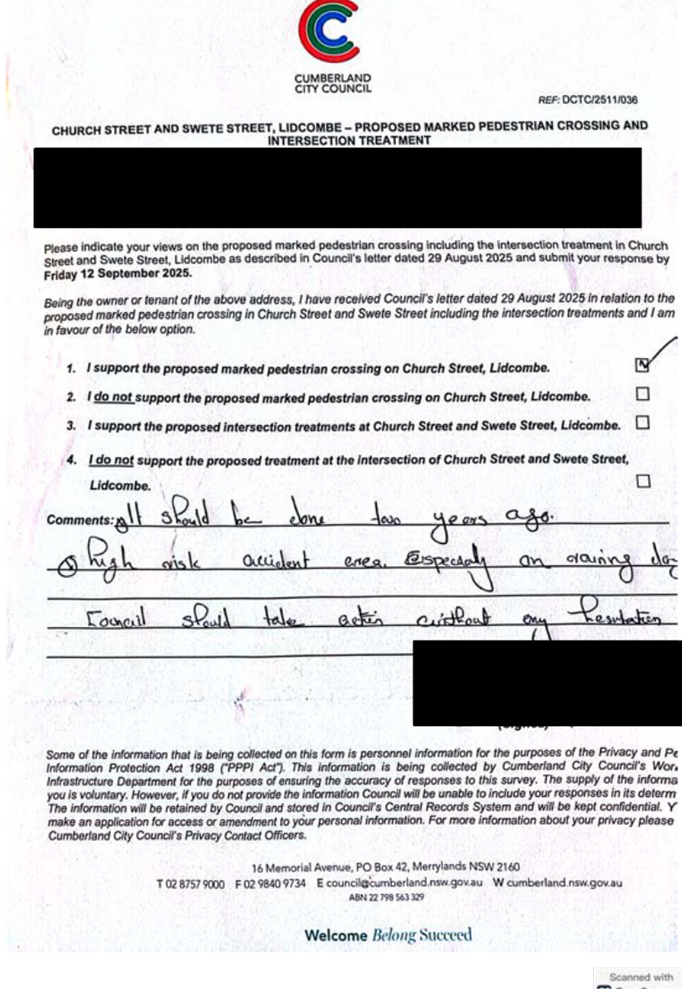 CUMBERLAND
CITY COUNCIL
REF: DCTC/2511/036
CHURCH STREET AND SWETE STREET, LIDCOMBE – PROPOSED MARKED PEDESTRIAN CROSSING AND
INTERSECTION TREATMENT
Please indicate your views on the proposed marked pedestrian crossing including the intersection treatment in Church
Street and Swete Street, Lidcombe as described in Council's letter dated 29 August 2025 and submit your response by
Friday 12 September 2025.
Being the owner or tenant of the above address, I have received Council's letter dated 29 August 2025 in relation to the
proposed marked pedestrian crossing in Church Street and Swete Street including the intersection treatments and I am
in favour of the below option.
1. I support the proposed marked pedestrian crossing on Church Street, Lidcombe.
2. I do not support the proposed marked pedestrian crossing on Church Street, Lidcombe.
3. I support the proposed intersection treatments at Church Street and Swete Street, Lidcombe.
4. I do not support the proposed treatment at the intersection of Church Street and Swete Street,
Lidcombe.
Comments: It should be done two years ago.
high risk accident area. Especialy on raining
Council should take without any
Some of the information that is being collected on this form is personnel information for the purposes of the Privacy and Pe
Information Protection Act 1998 ("PPPI Act"). This information is being collected by Cumberland City Council's Wor
Infrastructure Department for the purposes of ensuring the accuracy of responses to this survey. The supply of the informa
you is voluntary. However, if you do not provide the information Council will be unable to include your responses in its determ
The information will be retained by Council and stored in Council's Central Records System and will be kept confidential. Y
make an application for access or amendment to your personal information. For more information about your privacy please
Cumberland City Council's Privacy Contact Officers.
16 Memorial Avenue, PO Box 42, Merrylands NSW 2160
T 02 8757 9000 F 02 9840 9734 E council@cumberland.nsw.gov.au W cumberland.nsw.gov.au
ABN 22 798 563 329
Welcome Belong Succeed
Scanned with